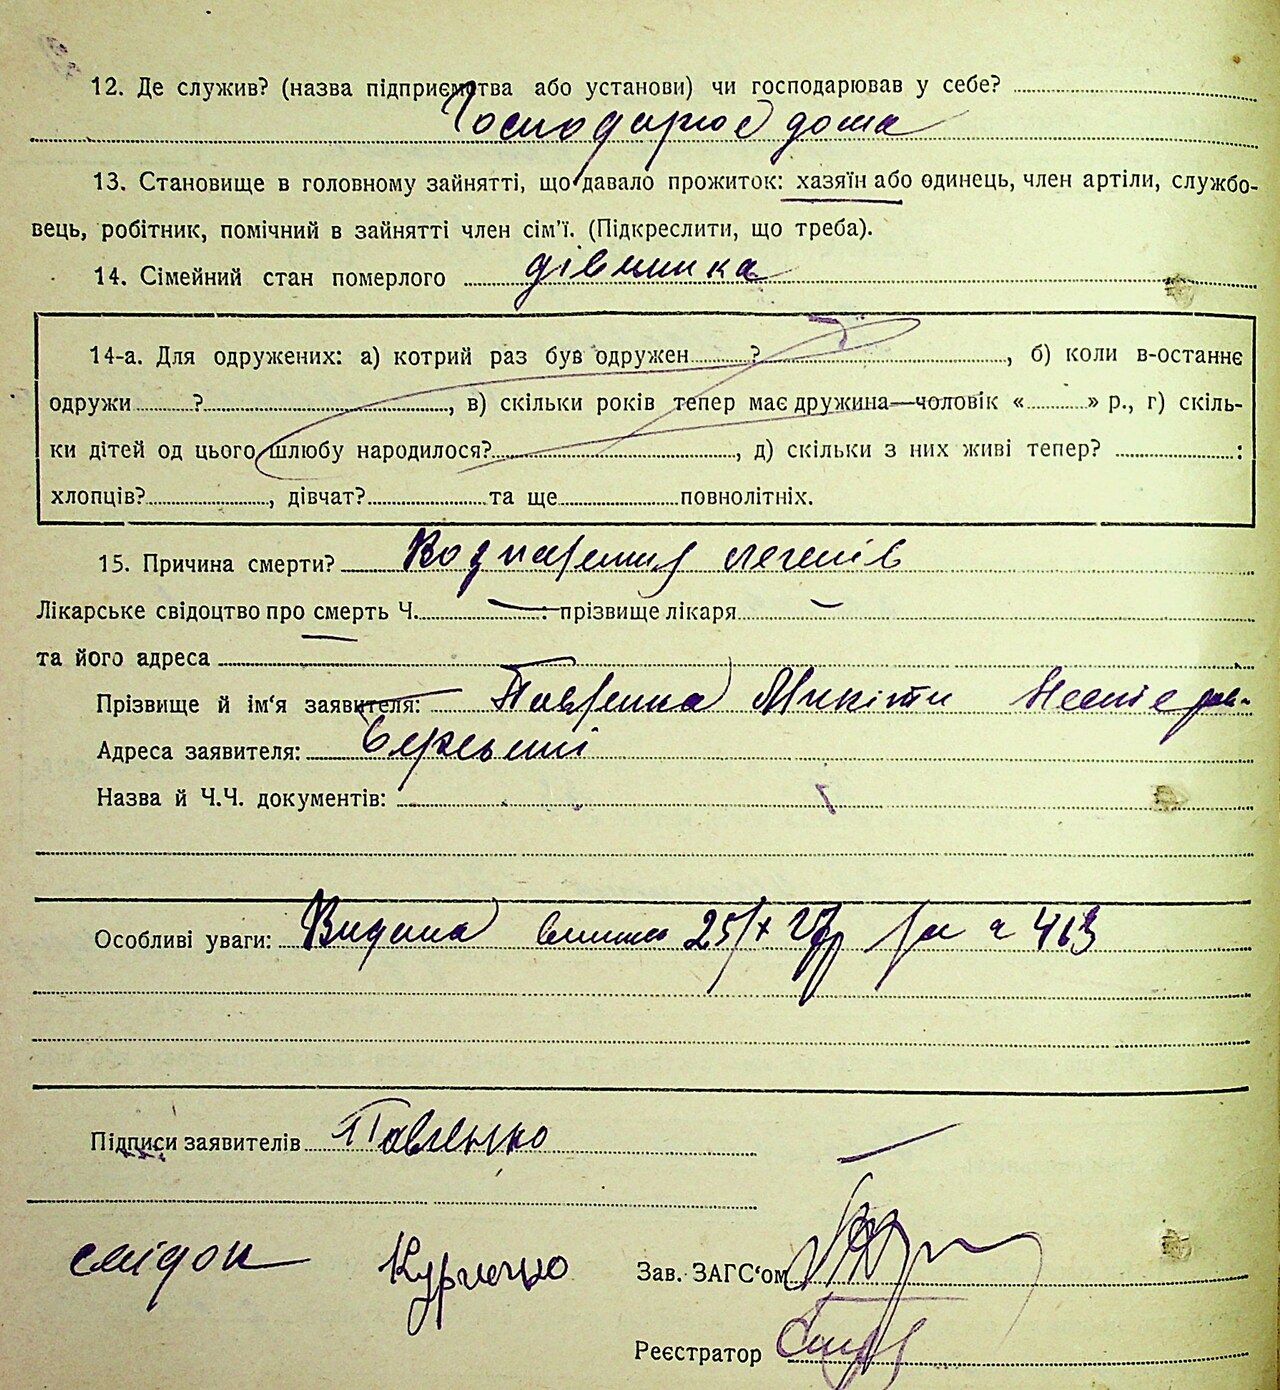 12. Де служив? (назва підприємства або установи) чи господарював у себе?
Господарює дома
13. Становище в головному зайнятті, що давало прожиток: хазяїн або одинець, член артіли, службо-
вець, робітник, помічний в зайнятті член сім'ї. (Підкреслити, що треба).
14. Сімейний стан померлого дівчинка
14-а. Для одружених: а) котрий раз був одружен ? , б) коли в-останнє
одружи ? , в) скільки років тепер має дружина—чоловік « » р., г) скіль-
ки дітей од цього шлюбу народилося? , д) скільки з них живі тепер? :
хлопців? , дівчат? та ще повнолітніх.
15. Причина смерти? легенів
Лікарське свідоцтво про смерть Ч. : прізвище лікаря
та його адреса
Прізвище й ім'я заявителя: Павленка Микити
Адреса заявителя:
Назва й Ч.Ч. документів:
Особливі уваги: Видана 25/X 463
Підписи заявителів Павленко
свідок Курченко
Зав. ЗАГС'ом
Реєстратор